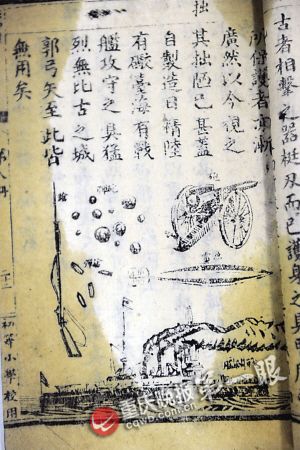 古者相擊之器梃及而已護身之具
所保護者亦漸
廣然以今視之
拙
其拙陋已甚蓋
自製造日精陸
有礮臺海有戰
艦攻守之具猛
烈無比古之城
郭弓矢至此皆
無用矣
初等小學校用
重庆晚报 第一眼
www.cqwb.com.cn